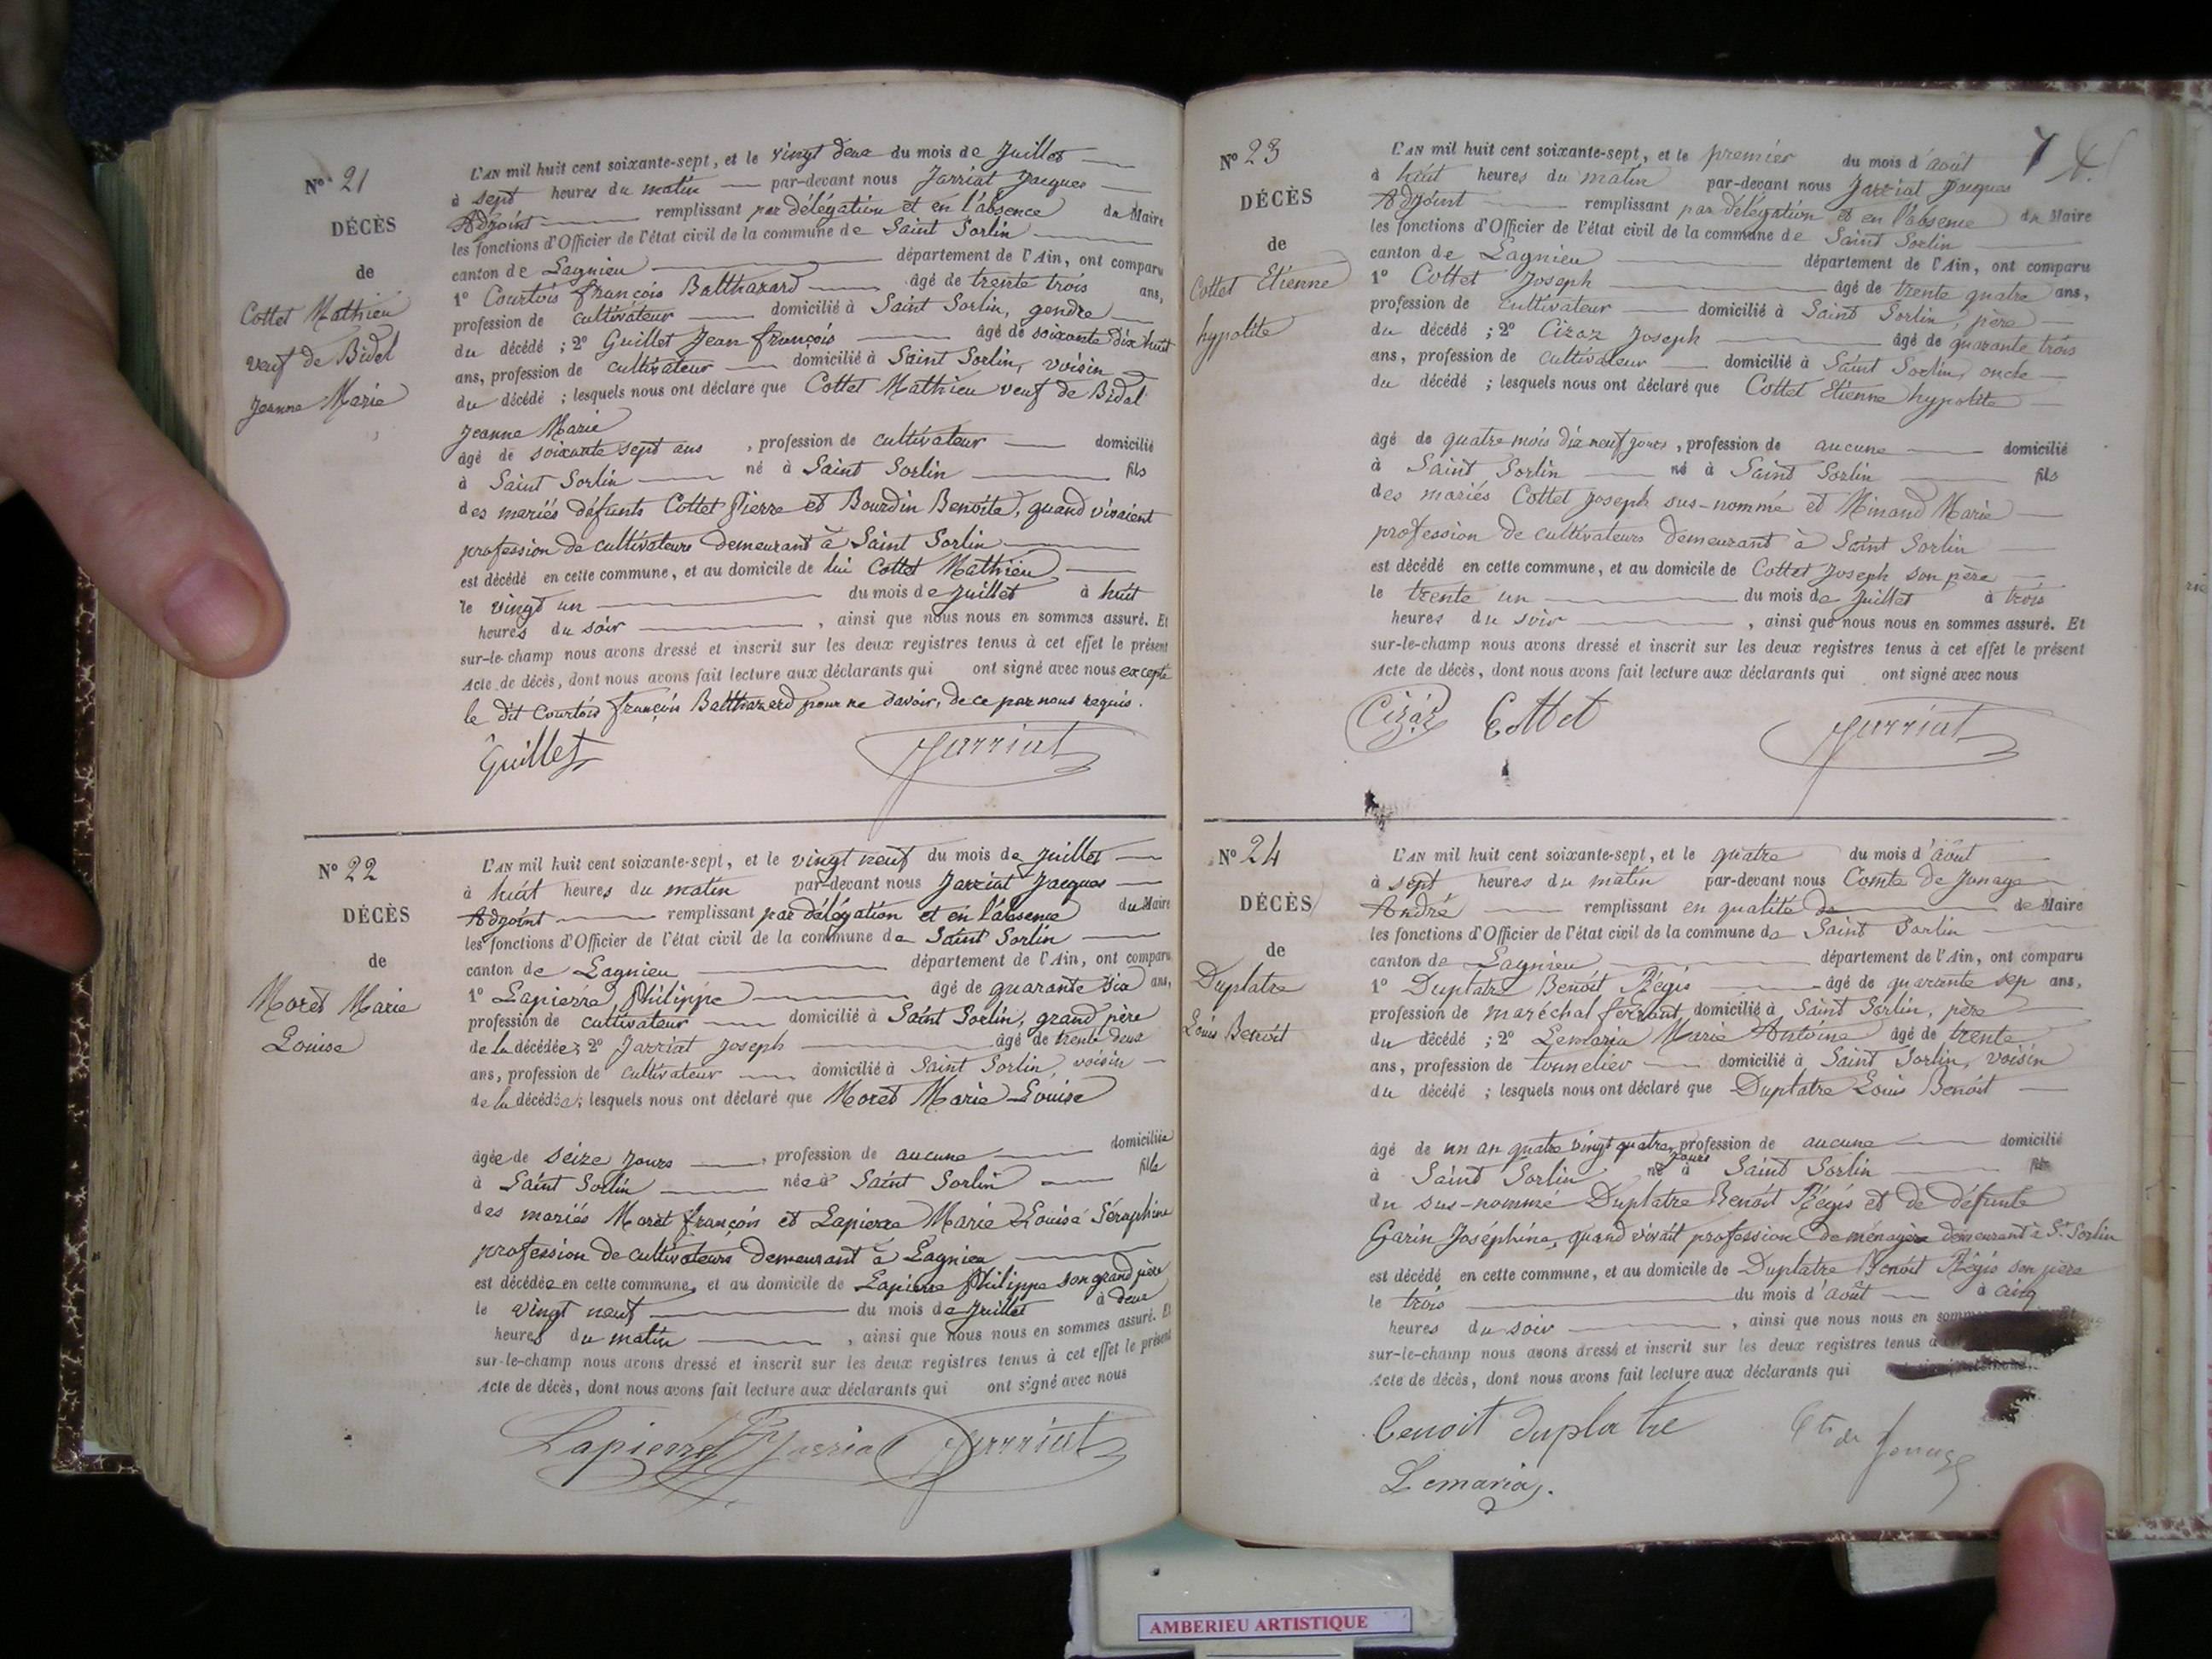 N° 21
DÉCÈS
de
Cottet Mathieu
veuf de Bidel
Jeanne Marie
L'AN mil huit cent soixante-sept, et le vingt deux du mois de Juillet
à sept heures du matin par-devant nous Jarriat Jacques
Adjoint remplissant par délégation et en l'absence du Maire
les fonctions d'Officier de l'état civil de la commune de Saint Sorlin
canton de Lagnieu département de l'Ain, ont comparu
1° Courtois françois Balthazard âgé de trente trois ans,
profession de cultivateur domicilié à Saint Sorlin, gendre
du décédé ; 2° Guillet Jean françois âgé de soixante dix huit
ans, profession de cultivateur domicilié à Saint Sorlin, voisin
du décédé ; lesquels nous ont déclaré que Cottet Mathieu veuf de Bidal
Jeanne Marie
âgé de soixante sept ans , profession de cultivateur domicilié
à Saint Sorlin né à Saint Sorlin fils
des mariés défunts Cottet Pierre et Bourdin Benoîte, quand vivaient
profession de cultivateurs demeurant à Saint Sorlin
est décédé en cette commune, et au domicile de lui Cottet Mathieu
le vingt un du mois de Juillet à huit
heures du soir , ainsi que nous nous en sommes assuré. Et
sur-le-champ nous avons dressé et inscrit sur les deux registres tenus à cet effet le présent
Acte de décès, dont nous avons fait lecture aux déclarants qui ont signé avec nous excepté
le dit Courtois françois Balthazard pour ne savoir, de ce par nous requis.
Guillet Jarriat
N° 22
DÉCÈS
de
Moret Marie
Louise
L'AN mil huit cent soixante-sept, et le vingt neuf du mois de Juillet
à huit heures du matin par-devant nous Jarriat Jacques
Adjoint remplissant par délégation et en l'absence du Maire
les fonctions d'Officier de l'état civil de la commune de Saint Sorlin
canton de Lagnieu département de l'Ain, ont comparu
1° Lapierre Philippe âgé de quarante six ans,
profession de cultivateur domicilié à Saint Sorlin, grand père
de la décédée; 2° Jarriat Joseph âgé de trente deux
ans, profession de cultivateur domicilié à Saint Sorlin, voisin
de la décédée; lesquels nous ont déclaré que Moret Marie Louise
âgée de seize jours , profession de aucune domiciliée
à Saint Sorlin née à Saint Sorlin fille
des mariés Moret françois et Lapierre Marie Louise Séraphine
profession de cultivateurs demeurant à Lagnieu
est décédée en cette commune, et au domicile de Lapierre Philippe son grand père
le vingt neuf du mois de Juillet à deux
heures du matin , ainsi que nous nous en sommes assuré. Et
sur-le-champ nous avons dressé et inscrit sur les deux registres tenus à cet effet le présent
Acte de décès, dont nous avons fait lecture aux déclarants qui ont signé avec nous
Lapierre Jarriat Jarriat
7
N° 23
DÉCÈS
de
Cottet Etienne
hypolite
L'AN mil huit cent soixante-sept, et le premier du mois d'août
à huit heures du matin par-devant nous Jarriat Jacques
Adjoint remplissant par délégation et en l'absence du Maire
les fonctions d'Officier de l'état civil de la commune de Saint Sorlin
canton de Lagnieu département de l'Ain, ont comparu
1° Cottet Joseph âgé de trente quatre ans,
profession de cultivateur domicilié à Saint Sorlin, père
du décédé ; 2° Cizaz Joseph âgé de quarante trois
ans, profession de cultivateur domicilié à Saint Sorlin, oncle
du décédé ; lesquels nous ont déclaré que Cottet Etienne hypolite
âgé de quatre mois dix neuf jours , profession de aucune domicilié
à Saint Sorlin né à Saint Sorlin fils
des mariés Cottet Joseph sus-nommé et Minand Marie
profession de cultivateurs demeurant à Saint Sorlin
est décédé en cette commune, et au domicile de Cottet Joseph son père
le trente un du mois de Juillet à trois
heures du soir , ainsi que nous nous en sommes assuré. Et
sur-le-champ nous avons dressé et inscrit sur les deux registres tenus à cet effet le présent
Acte de décès, dont nous avons fait lecture aux déclarants qui ont signé avec nous
Cizaz Cottet Jarriat
N° 24
DÉCÈS
de
Duplatre
Louis Benoît
L'AN mil huit cent soixante-sept, et le quatre du mois d'août
à sept heures du matin par-devant nous Comte de Jonage
André remplissant en qualité de de Maire
les fonctions d'Officier de l'état civil de la commune de Saint Sorlin
canton de Lagnieu département de l'Ain, ont comparu
1° Duplatre Benoît Régis âgé de quarante sep ans,
profession de maréchal ferrant domicilié à Saint Sorlin, père
du décédé ; 2° Lemaria Marie Antoine âgé de trente
ans, profession de tonnelier domicilié à Saint Sorlin, voisin
du décédé ; lesquels nous ont déclaré que Duplatre Louis Benoît
âgé de un an quatre vingt quatre jours, profession de aucune domicilié
à Saint Sorlin né à Saint Sorlin fils
du sus-nommé Duplatre Benoît Régis et de défunte
Garin Joséphine, quand vivait profession de ménagère demeurant à St Sorlin
est décédé en cette commune, et au domicile de Duplatre Benoît Régis son père
le trois du mois d'août à cinq
heures du soir , ainsi que nous nous en
sur-le-champ nous avons dressé et inscrit sur les deux registres tenus à
Acte de décès, dont nous avons fait lecture aux déclarants qui
benoit duplatre Cte de Jonage
Lemaria
AMBERIEU ARTISTIQUE